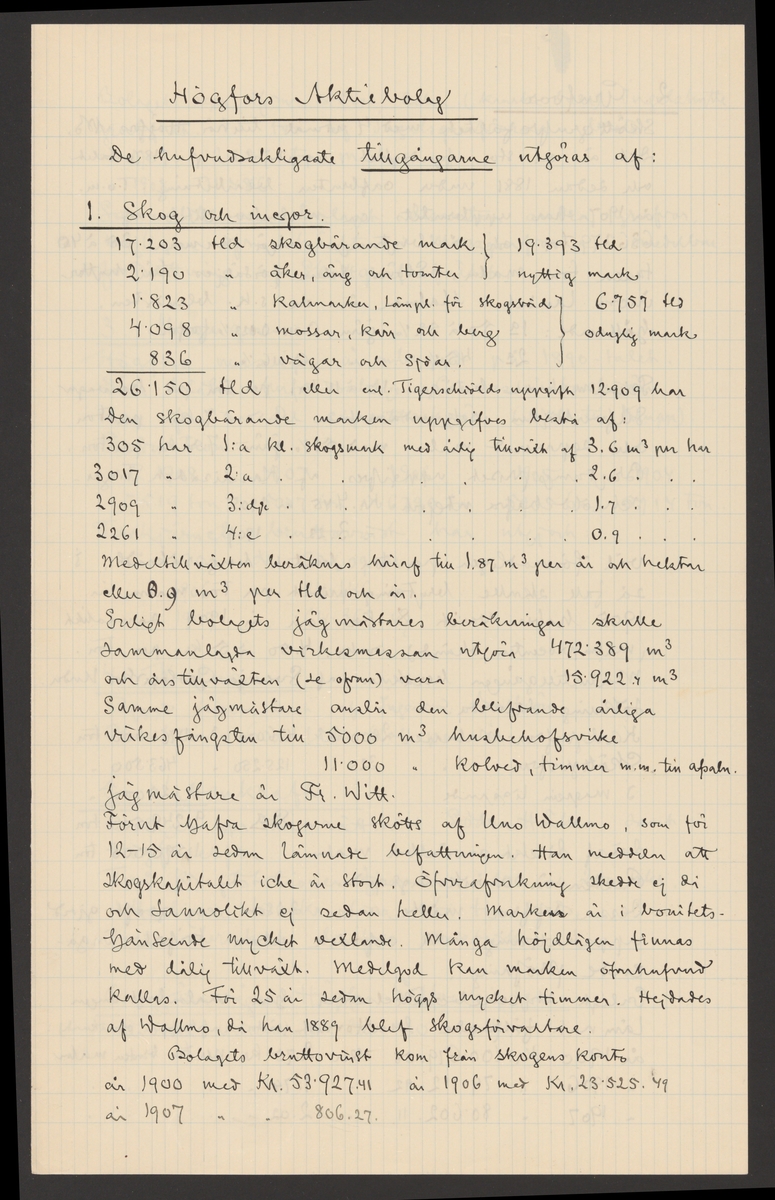 Högfors Aktiebolag
De hufvudsakligaste tillgångarne utgöras af:
1. Skog och inegor.
17.203 tld skogbärande mark } 19.393 tld
2.190 " åker, ång och tomter } nyttig mark
1.823 " Kalmarker, lämpl. för skogsbörd } 6.757 tld
4.098 " mossar, kärr och berg } oduglig mark
836 " vägar och Sjöar.
26.150 tld eller enl. Tigerschiölds uppgift 12.909 har
Den skogbärande marken uppgifves bestå af:
305 har 1:a kl. skogsmark med årlig tillväxt af 3.6 m³ per har
3017 " 2:a . . . . . . 2.6 . . .
2909 " 3:dje . . . . . . 1.7 . . .
2261 " 4:e . . . . . . 0.9 . . .
Medeltillväxten beräknas häraf till 1.87 m³ per år och hektar
eller 0.9 m³ per tld och år.
Enligt bolagets jägmästares beräkningar skulle
sammanlagda virkesmassan utgöra 472.389 m³
och årstillväxten (se ofvan) vara 15.922.7 m³
Samme jägmästare anslår den blifvande årliga
virkesfångsten till 5000 m³ husbehofsvirke
11.000 " Kolved, timmer m.m. till afsaln.
jägmästare är Fr. Witt.
Förut hafva skogarne skötts af Uno Wallmo, som för
12-15 år sedan lämnade befattningen. Han meddelar att
skogskapitalet icke är stort. Öfverafverkning skedde ej då
och sannolikt ej sedan heller. Marken är i bonitets-
hänseende mycket vexlande. Många höjdlägen finnas
med dålig tillväxt. Medelgod kan marken öfverhufvud
kallas. För 25 år sedan höggs mycket timmer. Hejdades
af Wallmo, då han 1889 blef Skogsförvaltare.
Bolagets bruttovinst kom från skogens konto
år 1900 med Kr. 53.927.41 år 1906 med Kr. 23.525.49
år 1907 " " 806.27.